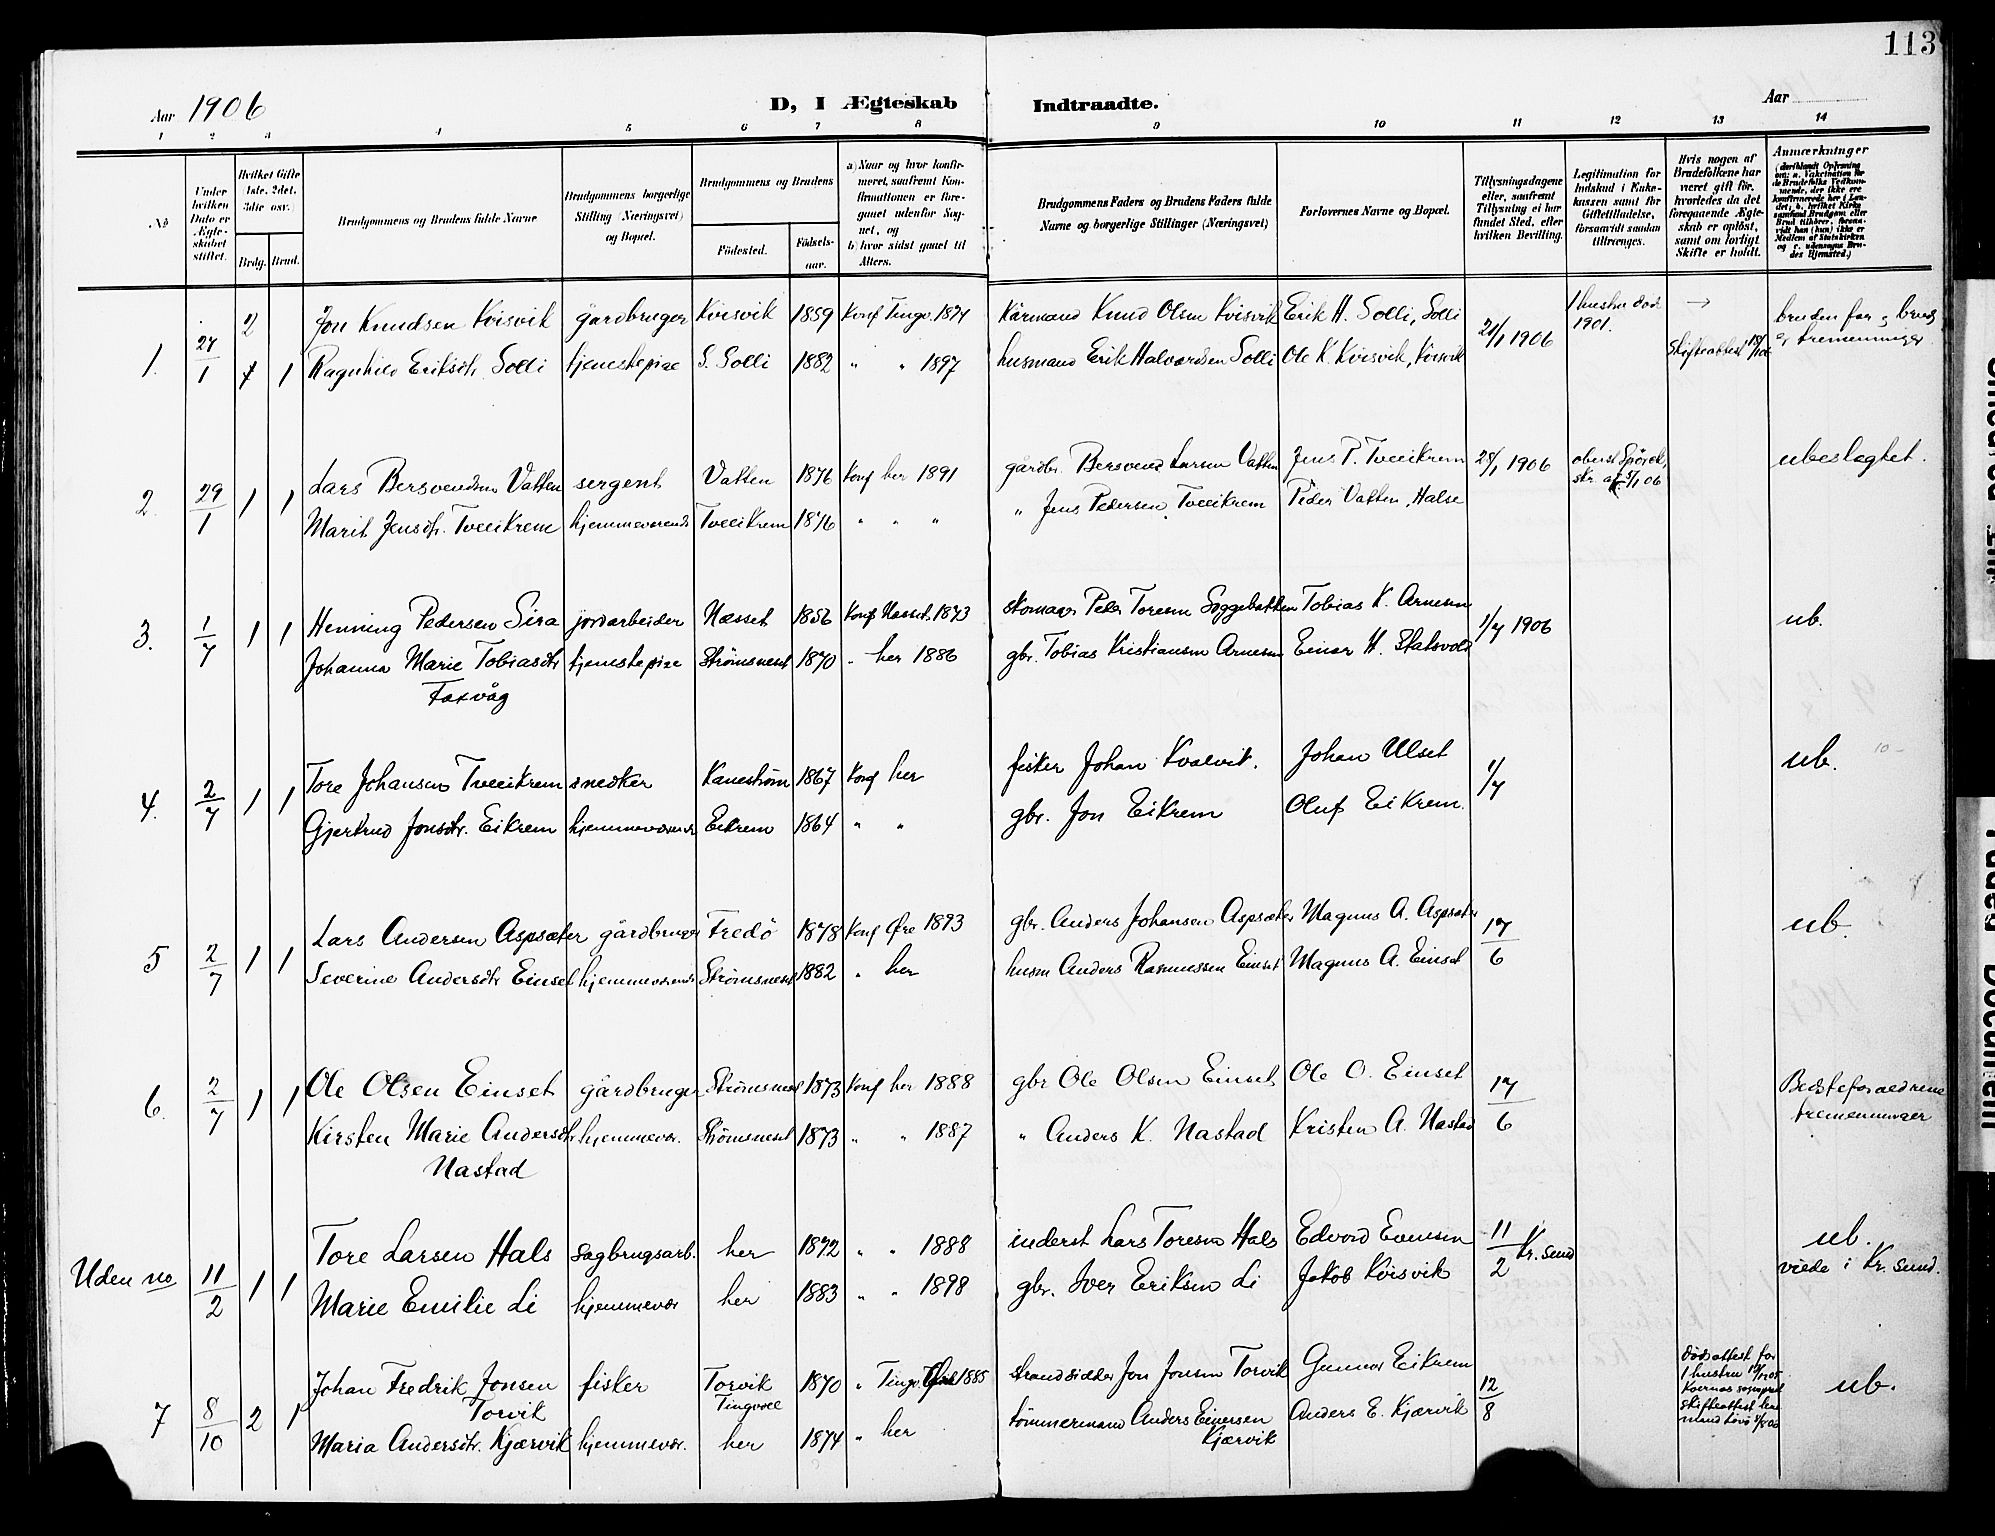 113
Aar 1906
D, I Ægteskab Indtraadte.
Aar
1 2 3 4 5 6 7 8 9 10 11 12 13 14
No
Under hvilken Dato er Ægteskabet stiftet.
Hvilket Gifte 1ste, 2det, 3die osv.
Brdg. Brud.
Brudgommens og Brudens fulde Navne
Brudgommens borgerlige Stilling (Næringsvei) og Bopæl.
Brudgommens og Brudens
Fødested.
Fødselsaar.
a) Naar og hvor konfirmeret, saafremt Konfirmationen er foregaaet udenfor Sognet, og
b) hvor sidst gaaet til Alters.
Brudgommens Faders og Brudens Faders fulde Navne og borgerlige Stillinger (Næringsvei)
Forlovernes Navne og Bopæl.
Tillysningsdagene eller, saafremt Tillysning ei har fundet Sted, efter hvilken Bevilling.
Legitimation for Indskud i Enkekassen samt for Giftetilladelse, forsaavidt saadan tiltrænges.
Hvis nogen af Brudefolkene har været gift før, hvorledes da det foregaaende Ægteskab er opløst, samt om lovligt Skifte er holdt.
Anmærkninger
1. 27/1 2 Jon Knudsen Kvisvik gårdbruger Kvisvik 1859 Konf Tingv. 1874 Kårmand Knud Olsen Kvisvik Erik H. Solli, Solli 21/1 1906 1 hustru død 1901. → bruden far og brudg
1 Ragnhild Eriksdtr. Solli tjenestepige S. Solli 1882 " " 1897 husmand Erik Halvardsen Solli Ole K. Kvisvik, Kvisvik Skifteattest er tremenninger
2. 29/1 1 1 Lars Bersvendsen Vatten sergent Vatten 1876 Konf her 1891 gårdbr. Bersvend Larsen Vatten Jens P. Tveeikrem 28/1 1906 oberst ubeslægtet.
Marit Jensdtr. Tveeikrem hjemmeværende Tveeikrem 1876 " " " " Jens Pedersen Tveeikrem Peder Vatten, Halse
3. 1/7 1 1 Henning Pedersen Sira jordarbeider Næsset 1856 Konf Nesset 1873 skomager Peter Toresen Soggebakken Tobias K. Arnesen 1/7 1906 ub.
Johanna Marie Tobiasdtr tjenestepige Strømsneset 1870 " her 1886 gbr. Tobias Kristiansen Arnesen Einar H. Statsvold
Taxvåg
4. 2/7 1 1 Tore Johansen Tveeikrem snedker Kanestrøm 1867 Konf her fisker Johan Kvalvik. Johan Ulset 1/7 ub.
Gjertrud Jonsdtr. Eikrem hjemmeværende Eikrem 1864 " " gbr. Jon Eikrem Oluf Eikrem.
5 2/7 1 1 Lars Andersen Aspsæter gårdbruger Fredø 1878 Konf Øre 1893 gbr. Anders Johansen Aspsæter Magnus A. Aspsæter 17/6 ub.
Severine Andersdtr Einset hjemmeværende Strømsneset 1882 " her husm Anders Rasmussen Einset Magnus A. Einset
6. 2/7 1 1 Ole Olsen Einset gårdbruger Strømsneset 1873 Konf her 1888 gbr Ole Olsen Einset Ole O. Einset 17/6 Bedsteforældrene
Kirsten Marie Andersdtr hjemmevær. Strømsneset 1873 " " 1887 " Anders K. Nastad Kristen A. Nastad tremenninger
Nastad
Uden no 11/2 1 1 Tore Larsen Hals sagbrugsarb. her 1872 " " 1888 inderst Lars Toresen Hals Edvard Evensen 11/2 Kr. sund ub.
Marie Emilie Li hjemmevær her 1883 " " 1898 gbr. Iver Eriksen Li Jakob Kvisvik viede i Kr. sund.
7 8/10 2 1 Johan Fredrik Jonsen fisker Torvik 1870 " Tingv. 1885 strandsidder Jon Jonsen Torvik Gunnar Eikrem 12/8 dødsattest for 1 hustru ub.
Torvik Tingvoll
Maria Andersdtr. Kjærvik hjemmevær. her 1874 " her tømmermand Anders Einersen Anders E. Kjærvik skifteattest
Kjærvik